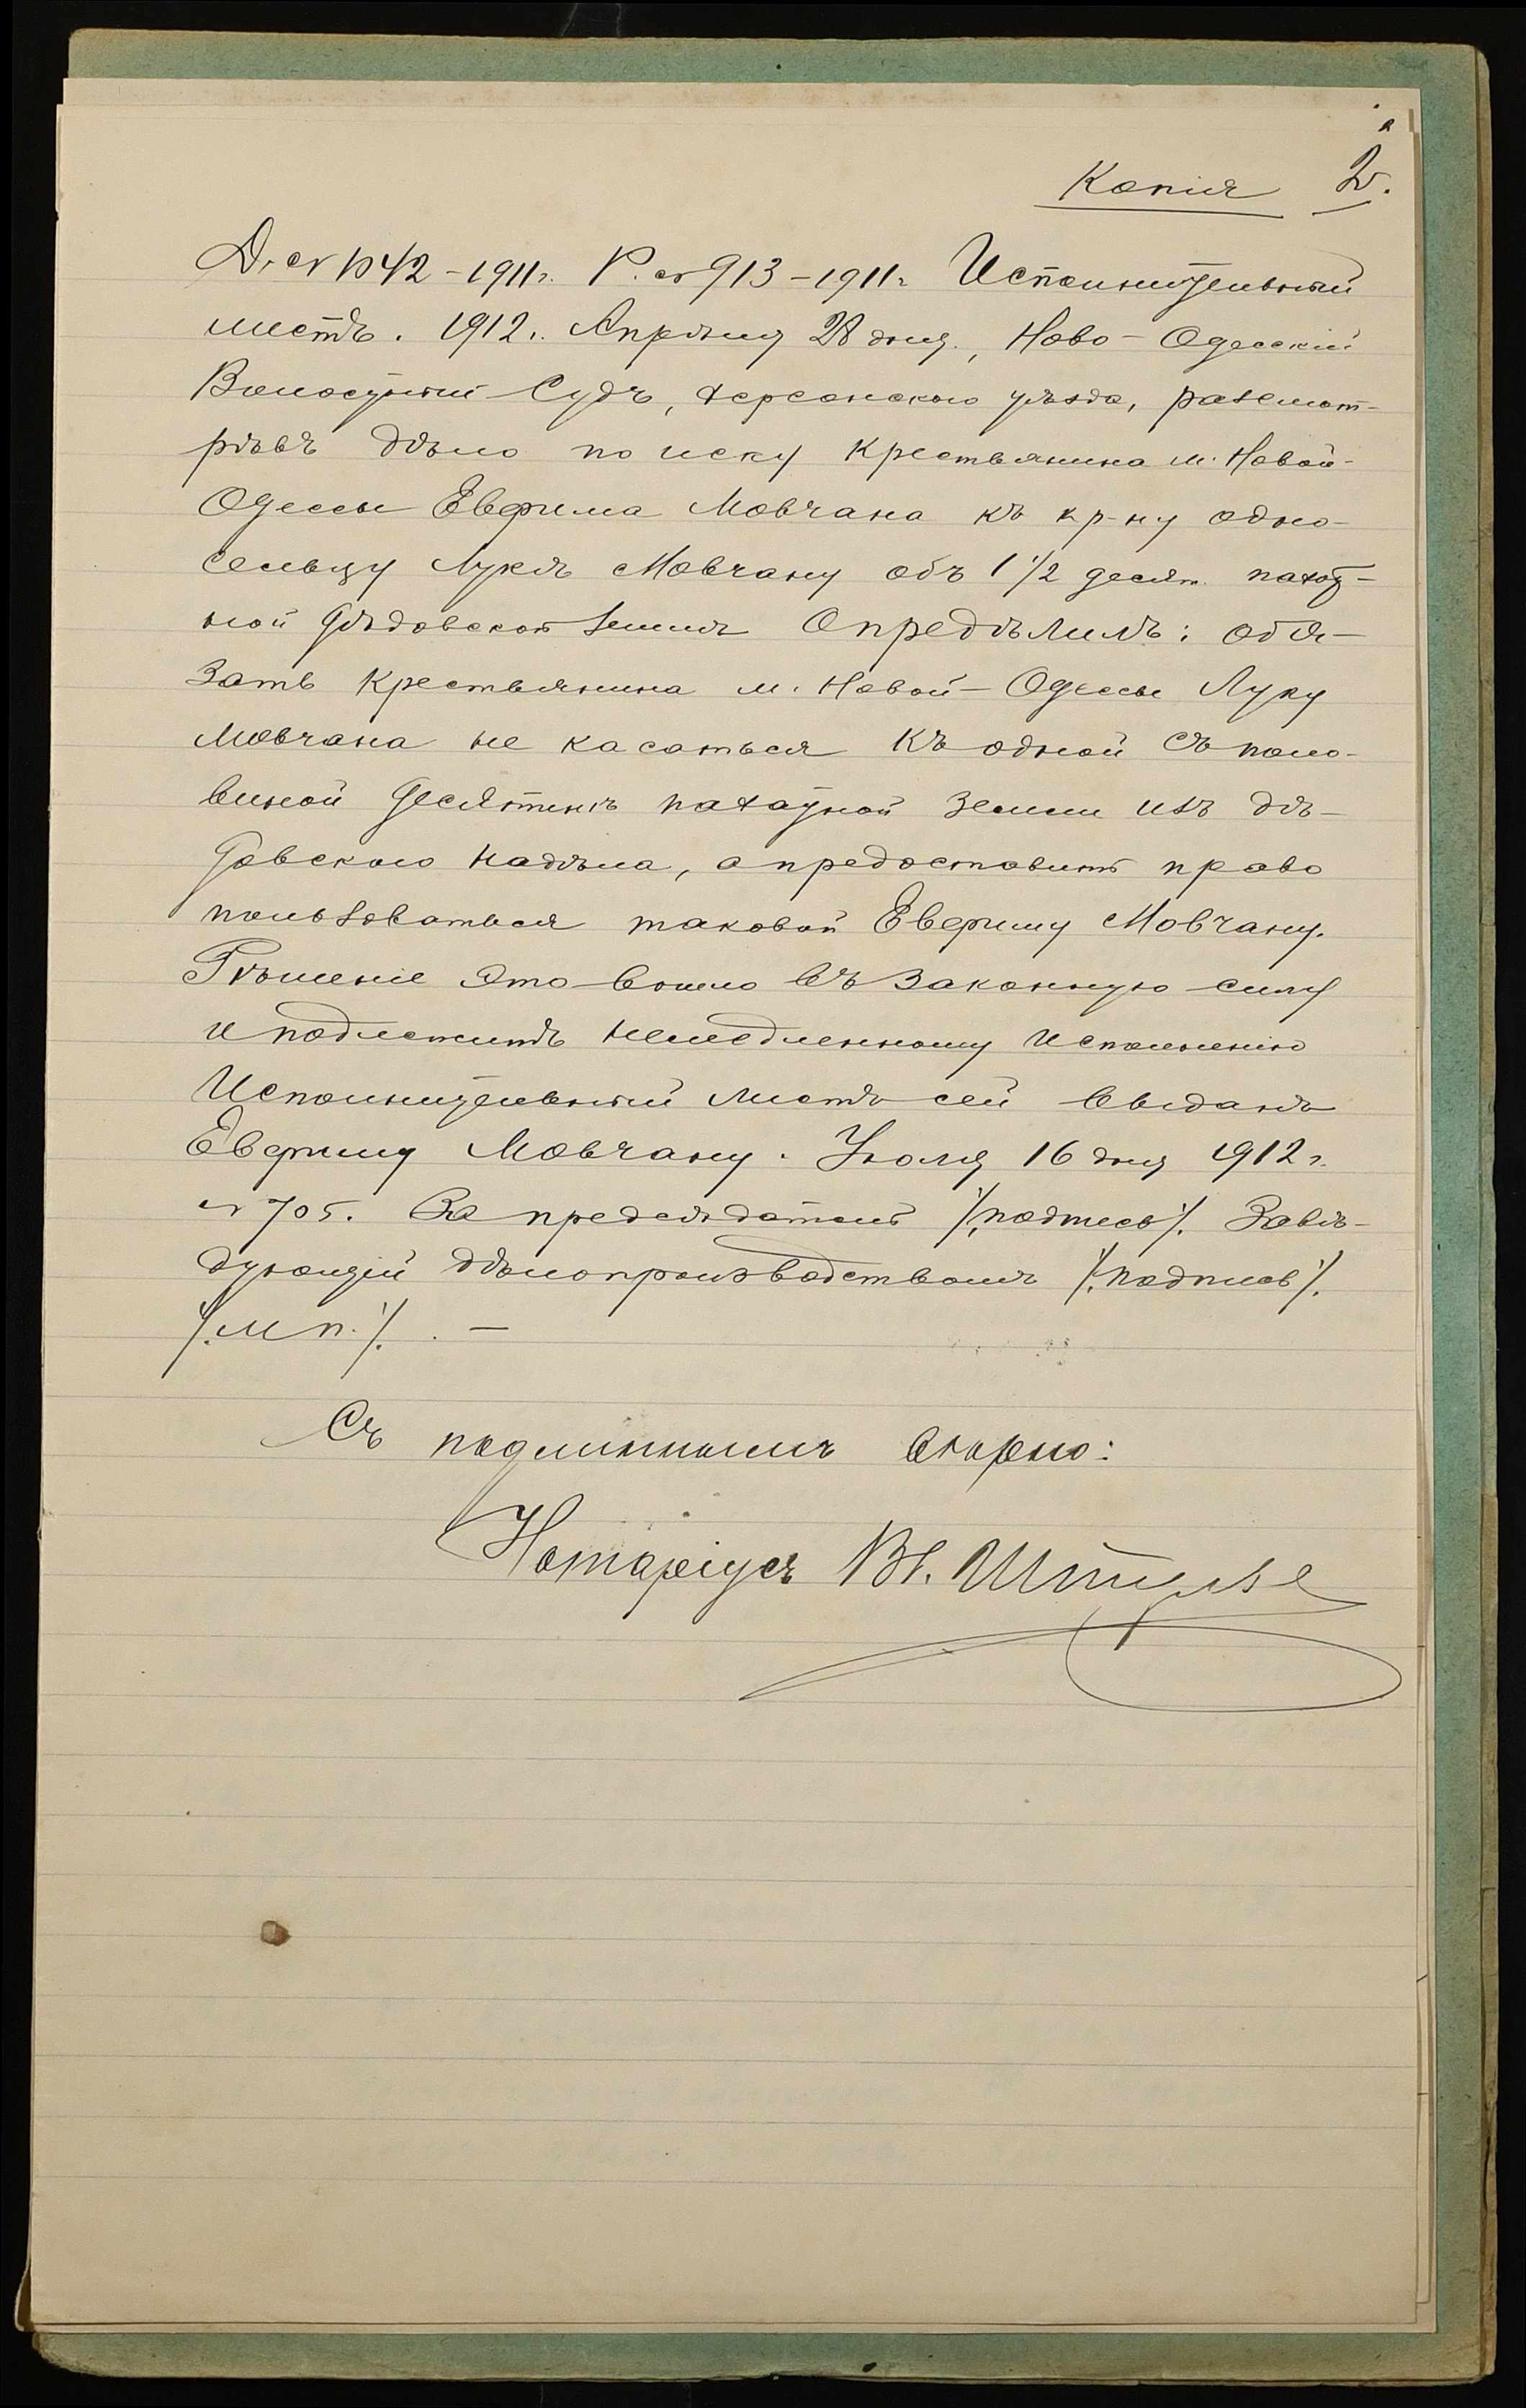 Копія 2.
Д. № 1042 – 1911 г. Р. № 913 – 1911 г. Исполнительный
листъ. 1912 г. Апрѣля 28 дня, Ново-Одесскій
Волостный Судъ, Херсонскаго уѣзда, разсмот-
рѣвъ дѣло по иску крестьянина м. Новой-
Одессы Евфима Мовчана къ кр-ну одно-
сельцу Лукѣ Мовчану объ 1 1/2 десят. пахот-
ной дѣдовской земли Опредѣлилъ: обя-
зать крестьянина м. Новой-Одессы Луку
Мовчана не касаться къ одной съ поло-
виной десятинѣ пахатной земли изъ дѣ-
довскаго надѣла, а предоставить право
пользоваться таковой Евфиму Мовчану.
Рѣшеніе это вошло въ законную силу
и подлежитъ немедленному исполненію
Исполнительный листъ сей выданъ
Евфиму Мовчану. Іюля 16 дня 1912 г.
№ 705. За предсѣдателя /подпись/. Завѣ-
дующій дѣлопроизводствомъ /подпись/.
/м п./. –
Съ подлиннымъ вѣрно:
Нотаріусъ Вл.